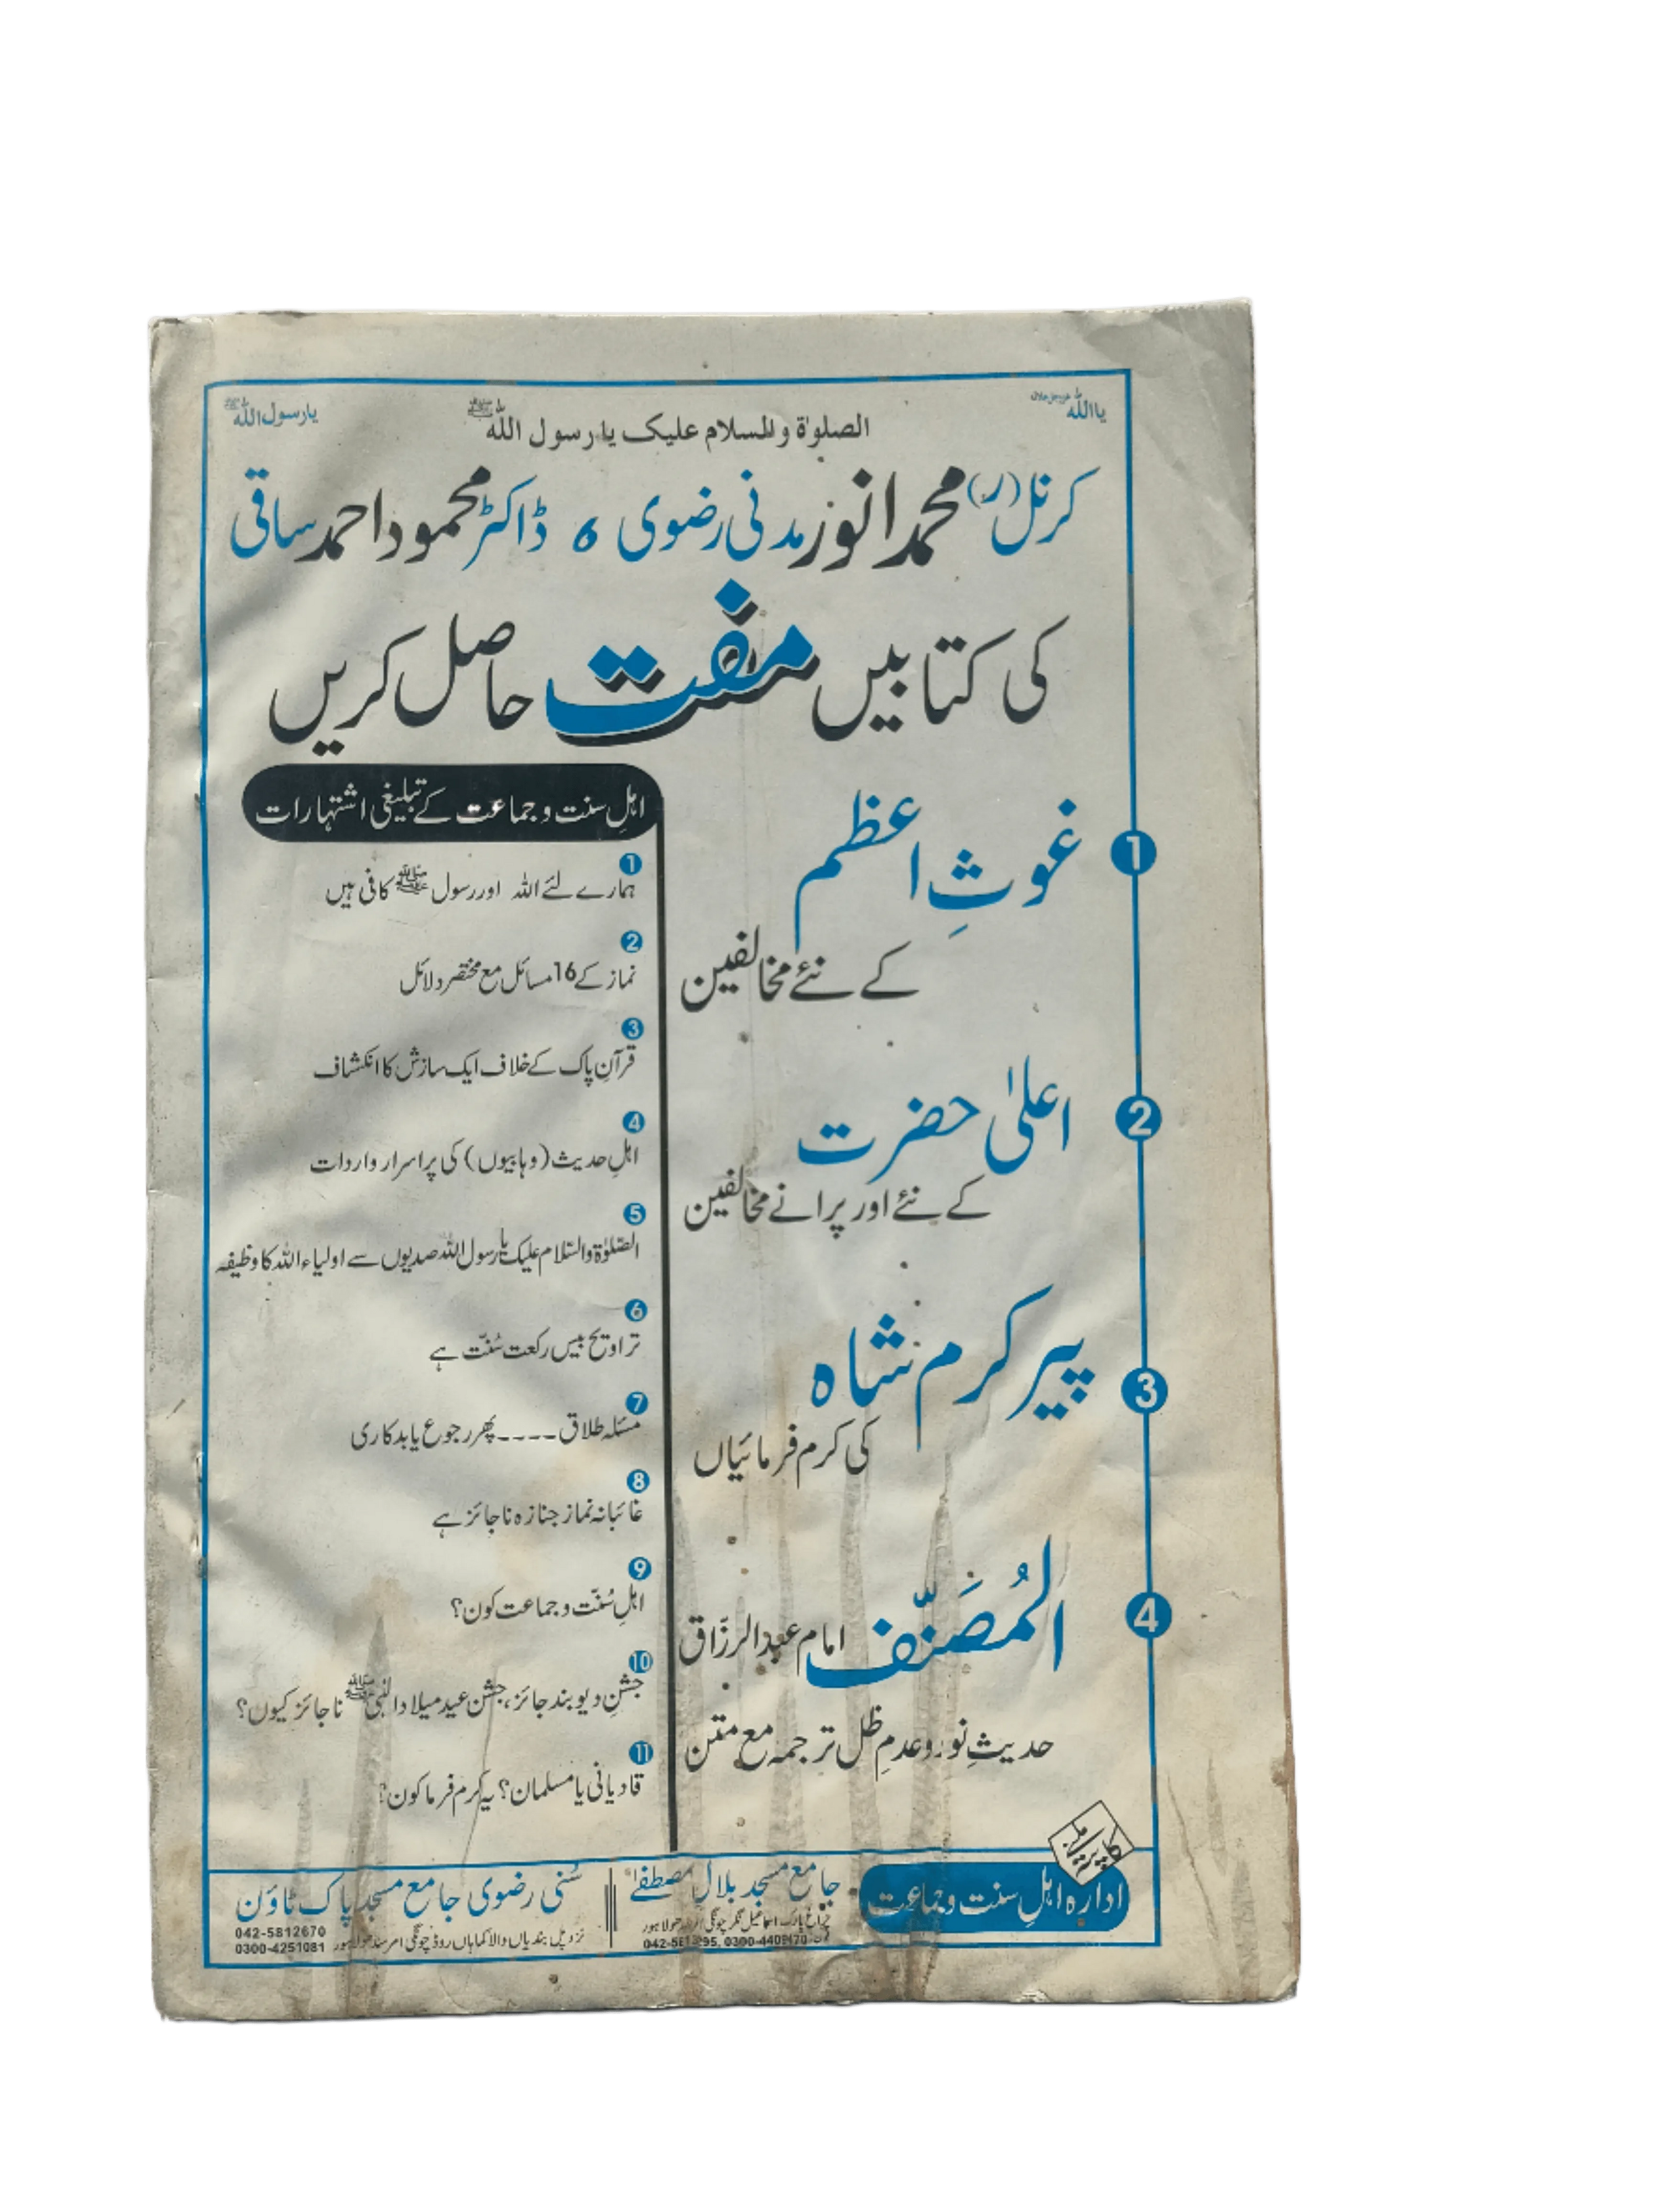 یااللہ عزوجل جلالہ
الصلوٰۃ والسلام علیک یارسول اللہ ﷺ
یارسول اللہ ﷺ
کرنل (ر) محمد انور مدنی رضوی ، ڈاکٹر محمود احمد ساقی
کی کتابیں مفت حاصل کریں
1
غوثِ اعظم
کے نئے مخالفین
2
اعلیٰ حضرت
کے نئے اور پرانے مخالفین
3
پیر کرم شاہ
کی کرم فرمائیاں
4
المُصَنَّف امام عبدالرزّاق
حدیثِ نور وعدمِ ظل ترجمہ مع متن
اہلِ سنت و جماعت کے تبلیغی اشتہارات
1
ہمارے لئے اللہ اور رسول ﷺ کافی ہیں
2
نماز کے 16 مسائل مع مختصر دلائل
3
قرآنِ پاک کے خلاف ایک سازش کا انکشاف
4
اہلِ حدیث (وہابیوں) کی پراسرار واردات
5
الصّلوٰۃ والسّلام علیک یارسول اللہ صدیوں سے اولیاء اللہ کا وظیفہ
6
تراویح بیس رکعت سُنّت ہے
7
مسئلہ طلاق ---- پھر رجوع یا بدکاری
8
غائبانہ نماز جنازہ ناجائز ہے
9
اہلِ سُنّت و جماعت کون؟
10
جشنِ دیوبند جائز، جشن عید میلاد النبی ﷺ ناجائز کیوں؟
11
قادیانی یا مسلمان؟ یہ کرم فرما کون؟
ادارہ اہلِ سنت و جماعت
جامع مسجد بلال مصطفےٰ
چراغ پارک اسماعیل نگر چونگی لاہور
سُنی رضوی جامع مسجد پاک ٹاؤن
نزد پل بندیاں والا کماہاں روڈ چونگی امر سدھو لاہور
042-5812670
0300-4251081